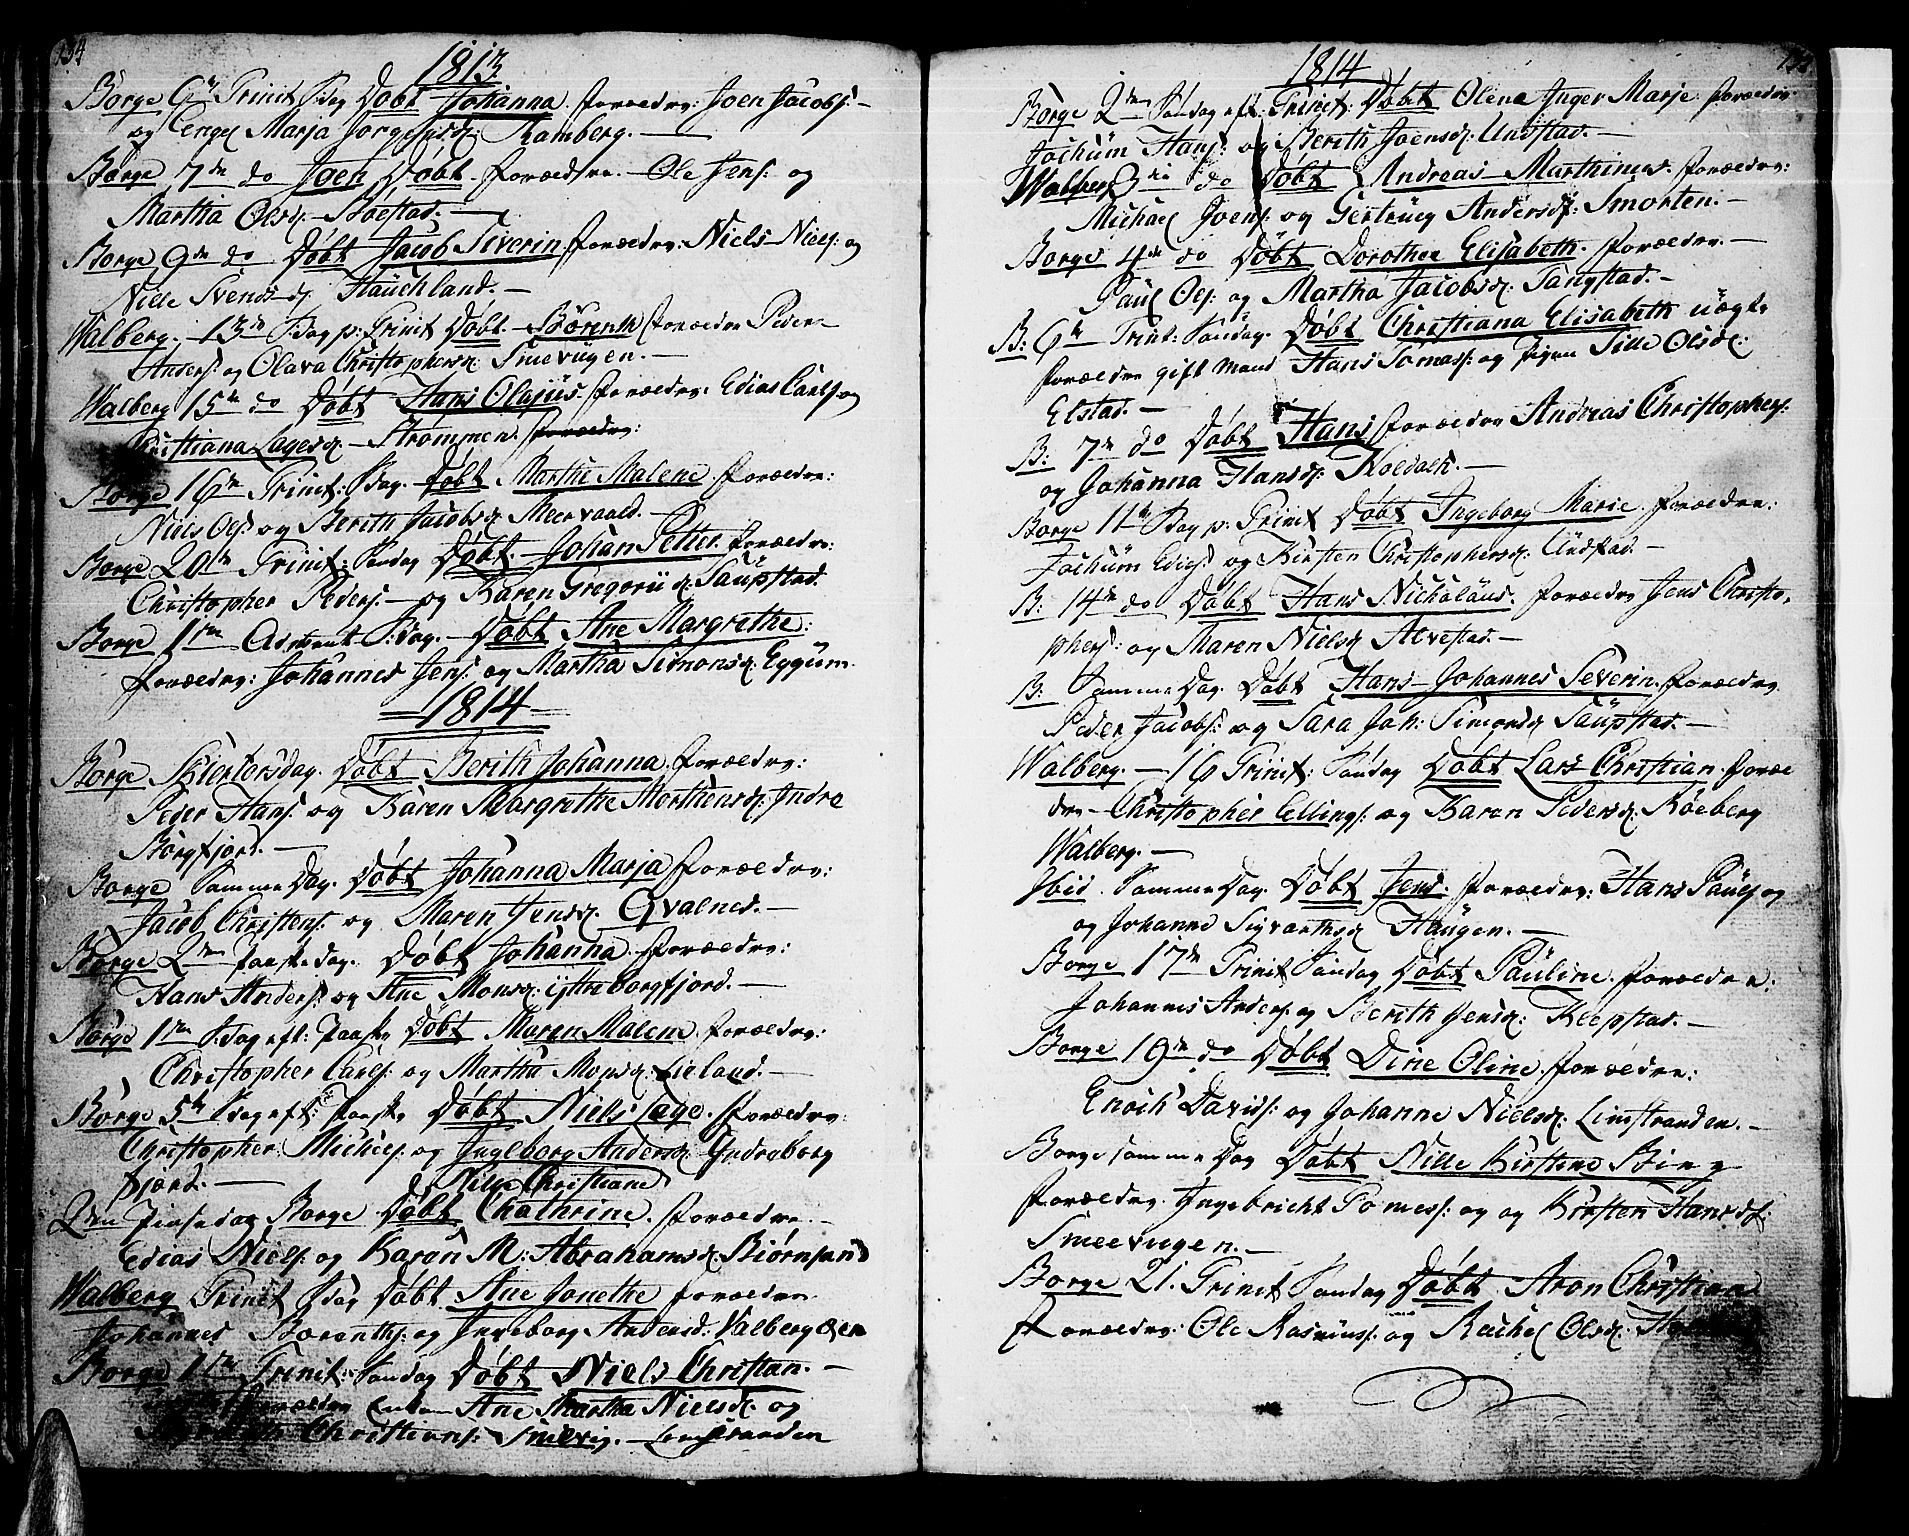 134
1813
Borge 6te Trinit: Sdag Døbt Johanna. foræeldre: Joen Jacobs:
og Marja Ramberg.
Borge 7de do Joen Døbt. foræeldre. Ole Jens: og
Martha Olsd. Bøestad.
Borge 9de do Døbt Jacob Siverin. foræeldre: Niels Niels: og
Nille Svensd. Hauchland.
Walberg. 13de Sdag p: Trinit Døbt Børenth foræeldre Peder
Anders: og Olava Christophersd: Smevugen.
Walberg 15de do Døbt Hans Olajus. foræeldre. Edias Carls: og
Christiana Lagesd. Strømmen. foræeldre:
Borge 16de Trinit: Sdag. Døbt Marthe Malene. foræeldre:
Niels Ols: og Berith Jacobsd. Meervaald.
Borge 20de Trinit: Søndag Døbt Johan Petter. foræeldre:
Christopher Peders: og Karen Gregoriid. Saupstad.
Borge 1ste Advent Sdag. Døbt Ane Margrethe:
foræeldre: Johannes Jens: og Martha Simonsd. Eggum.
1814
Borge Skiertorsdag. Døbt Berith Johanna. foræeldre:
Peder Hans: og Karen Margrethe Morthensd. Indre
Borgfjord.
Borge Samme Dag. Døbt Johanna Marja foræeldre:
Jacob Christens: og Maren Jensd. Qvalnes.
Borge 2den Paaskedag. Døbt Johanna. foræeldre:
Hans Anders: og Ane Monsd: ijttre borgfjord.
Borge 1ste Sdag eft: Paaske Døbt Maren Malene. foræeldre:
Christopher Carls: og Martha Monsd. Lieland.
Borge 5te Sdag eft: Paaske Døbt Niels Tage. foræeldre:
Christopher Michels: og Ingeborg Andersd. Indreborg
fjord.
Nille Christiane
2den Pintsedag Borge Døbt Chathrine. foræeldre.
Edias Niels: og Karen M: Abrahamsd. Biørnsand
Walberg Trinit Sdag Døbt Ane Jonethe foræeldre
Johannes Børenths: og Ingeborg Andersd: Walbergøen
Borge 1ste Trinit: Søndag Døbt Niels Christian.
foræeldre Ane Martha Nielsd. og
Christians: Smevig. Limstranden
1814
Borge 2den Søndag eft: Trinit: Døbt Olena Inger Marje: foræeldre.
Jochum Hans: og Berith Joensd. Undstad.
Walberg 3die do Døbt Andreas Marthinus. foræeldre:
Michael Joens: og Gertrug Andersd: Smorten.
Borge 4de do Døbt Dorothea Elisabeth. foræeldre.
Paul Ols: og Martha Jacobsd: Tangstad.
B: 6te Trint: Søndag. Døbt Christiana Elisabeth uægte
foræeldre gift mand Hans Tomas: og Pigen Sille Olsd:
Elstad.
B: 7de do Døbt Hans foræeldre Andreas Christophers:
og Johanna Hansd: Koldach.
Borge 11te Sdag p: Trinit Døbt Ingeborg Marie. foræeldre:
Jochum Edies: og Kirsten Christophersd: Undstad.
B: 14de do Døbt Hans Nicholaus. foræeldre Jens Christo,
phers: og Maren Nielsd. Alvestad.
B: Samme Dag. Døbt Hans Johannes Severin. foræeldre.
Peder Jacobs: og Sara Joh: Simonsd. Saupstad.
Walberg. 16 Trinit: Søndag Døbt Lars Christian. foræe
dre Christopher Ellings: og Karen Pedersd. Røeberg
Walberg.
Ibid. Samme Dag. Døbt Jens. foræeldre: Hans Pauls: og
og Johanne Sigvarthsd. Haugen.
Borge 17de Trinit Søndag Døbt Pauline. foræeldre:
Johannes Anders: og Berith Jensd: Keepstad.
Borge 19de do Døbt Dine Oline. foræeldre:
Enoch Davids: og Johanne Nielsd. Limstranden.
Borge samme Dag Døbt Nille Kirstene Bing
foræeldre. Ingebricht Tomes: og og Kirsten Hansd:
Smeevugen.
Borge 21. Trinit Søndag Døbt Aron Christian
foræeldre: Ole Rasmus: og Rachel Olsd: